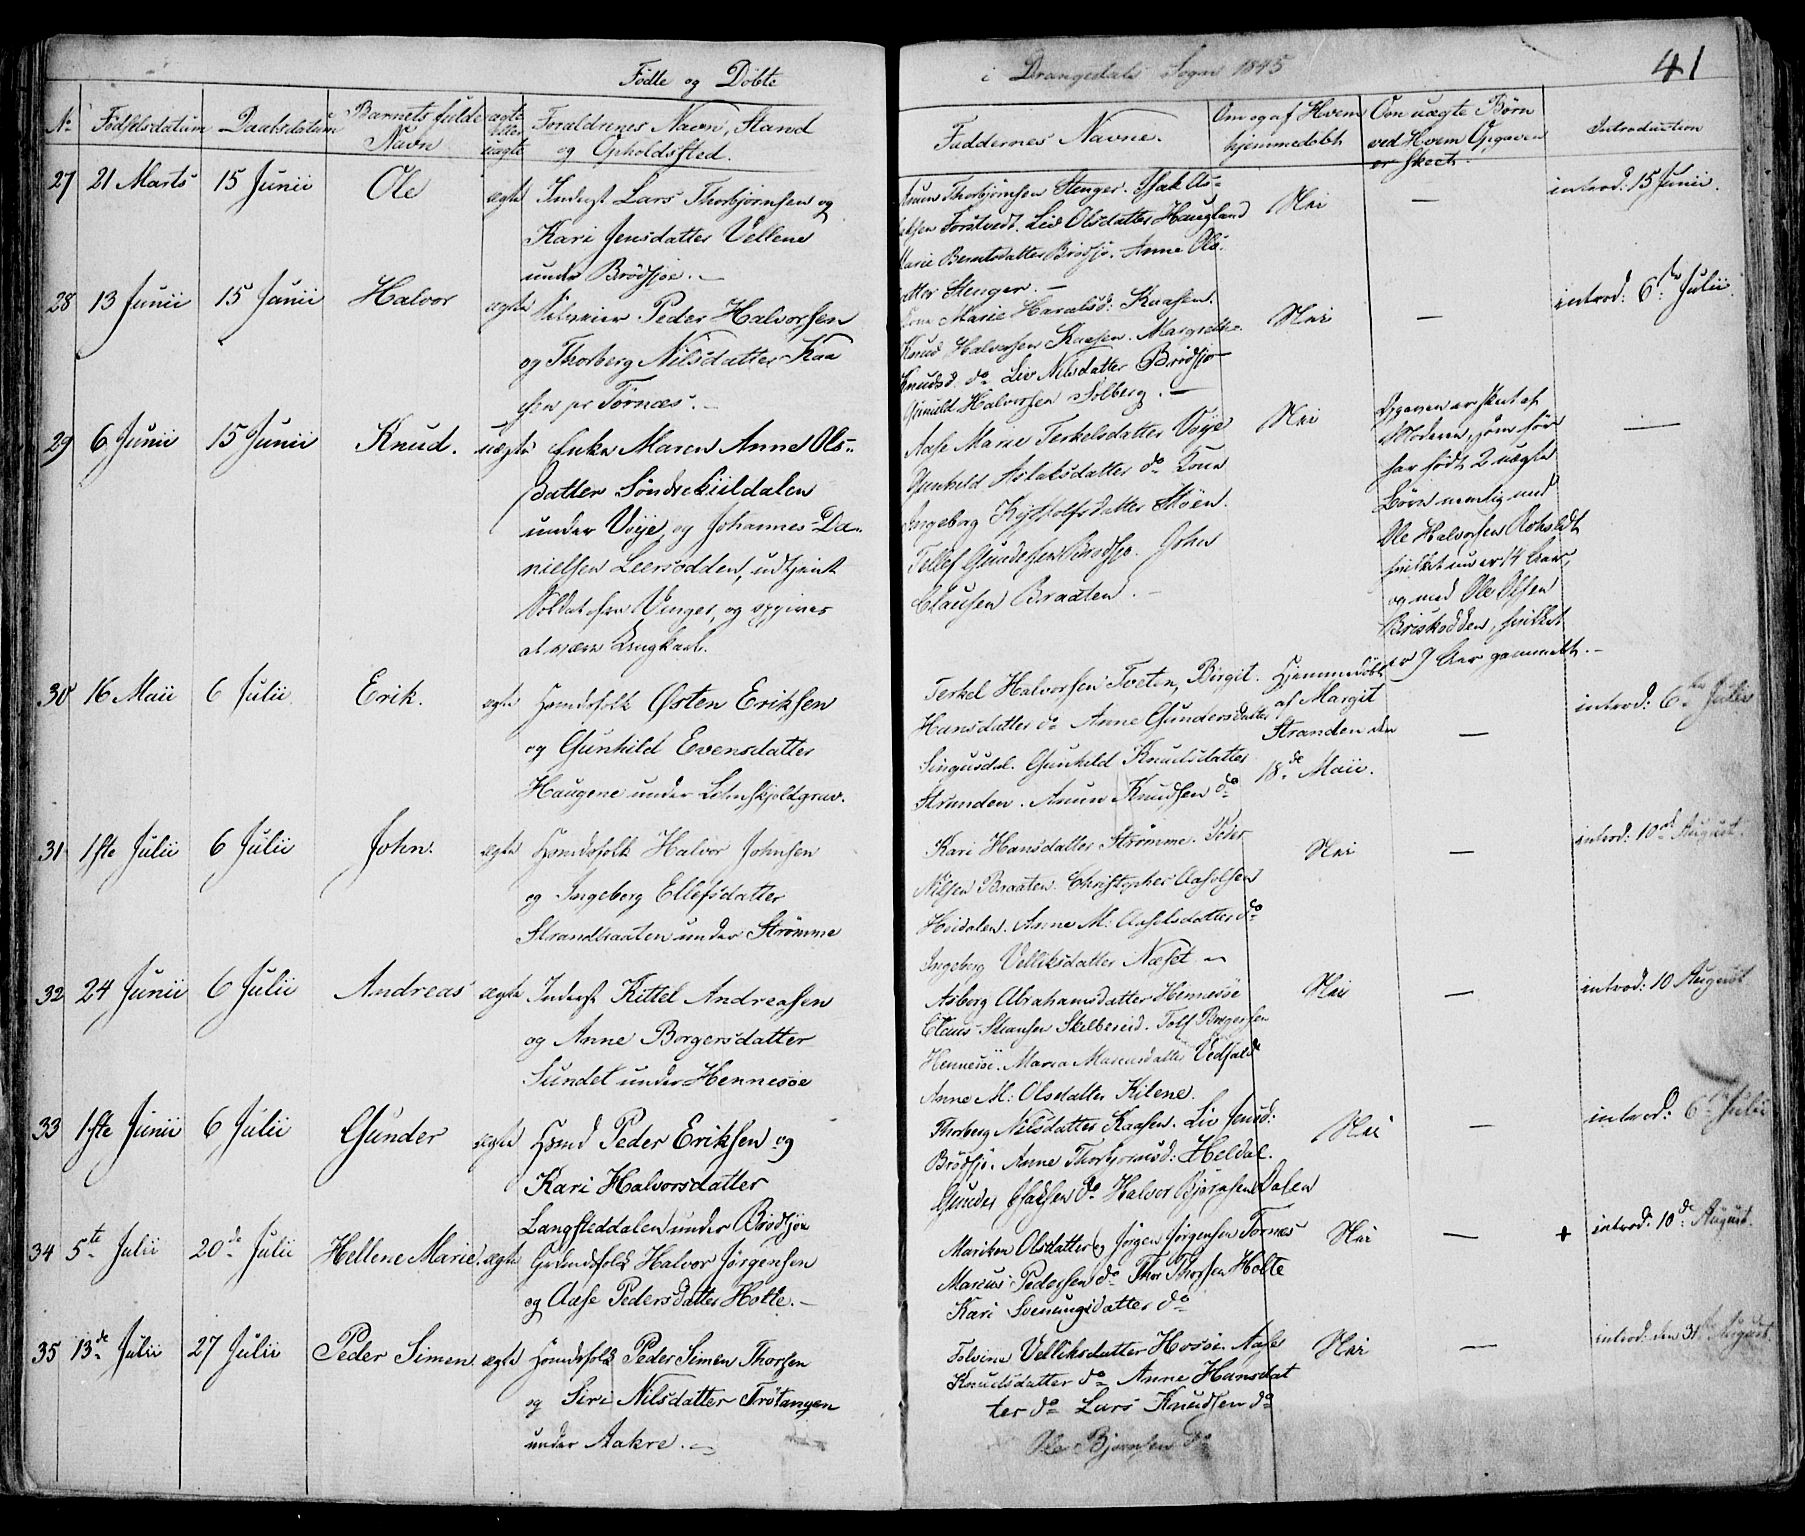 Fødte og Døbte
i Drangedals Sogn 1845
41
No
Fødselsdatum
Daabsdatum
Barnets fulde
Navn
ægte
eller
uægte
Foraldrenes Navn, Stand
og Opholdssted.
Faddernes Navne.
Om og af Hvem
hjemmedøbt
Om uægte Børn
ved Hvem Opgaven
er skeet.
Introduction
27 21 Marts 15 Junii Ole ægte
Inderst Lars Thorbjørnsen og
Kari Jensdatter Vellene
under Brödsjøe.
Thorbjørnsen Stenger. Isak As-
Forstvedt. Liv Olsdatter Haugland
Marie Berntsdatter Brödsjö. Anne Ols-
datter Stenger.
Nei
—
introd: 15 Junii.
28 13 Junii 15 Junii Halvor ægte
Selveier Peder Halvorsen
og Thorberg Nilsdatter Kaa
sen pr Törnæs.
Marie Haralsd: Kaasen.
Knud Halvorsen Kaasen. Margrethe
Knudsd. do Liv Nilsdatter Brödsjö
Halvorsen Solberg.
Nei
—
introd: 6te Julii.
29 6 Junii 15 Junii Knud. uægte
Enke Maren Anne Ols-
datter Søndrekiildalen
under Voje, og Johannes Da-
nielsen Leersodden, udtjent
Soldat fra Vinger, og opgives
at være Ungkarl.
Aase Marie Terkelsdatter Voje
Gunhild Aslaksdatter do Tone
Ingeborg Kjetolfsdatter Sköen.
Tellef Gundersen Brödsjö. John
Clausen Braaten.
Nei
Opgaven er skeet af
Moderen, som før
har født 2 uægte
Børn nemlig med
Ole Halvorsen Roholdt
hvilket nu er 14 Aar,
og med Ole Olsen
Briskodden, hvilket
er 9 Aar gammelt.
—
30 16 Maii 6 Julii Erik. ægte
Huusfolk Østen Eriksen
og Gunhild Evensdatter
Haugene under Lehnskjoldgrav.
Terkel Halvorsen Tveten, Birgit
Hansdatter do Anne Gundersdatter
Singusdal. Gunhild Knudsdatter
Stranden. Anun Knudsen do
Hjemmedøbt
af Margit
Stranden den
18de Maii.
—
introd: 6te Julii
31 1ste Julii 6 Julii John. ægte
Huusfolk Halvor Johnsen
og Ingeborg Ellefsdatter
Strandbraaten under Strømme
Kari Hansdatter Strømme. Peter
Nilsen Braaten. Christopher Aasolsen
Heidalen. Anne M: Aasolsdatter do
Ingeborg Velliksdatter Næset
Nei
—
introd: 10de August.
32 24 Junii 6 Julii Andreas ægte
Inderst Kittel Andreasen
og Anne Borgersdatter
Sundet under Hennesöe
Asberg Abrahamsdatter Hennesöe
Claus Hansen Skelbereid. Tolf Borgersen
Hennesöe. Maren Mariusdatter Vedfald
Anne M: Olsdatter Kilene.
Nei
—
introd: 10 August
33 1ste Junii 6 Julii Gunder ægte
Huusmd Peder Eriksen og
Kari Halvorsdatter
Langsteddalen under Brödsjöe
Thorberg Nilsdatter Kaasen. Liv Jensd:
Brödsjö. Anne Thorbjørnsd: Heldal.
Gunder Isaksen do Halvor Bjørnsen Dalen
Nei
—
introd: 6te Julii
34 5te Julii 20de Julii Hellene Marie. ægte
Grundfolk Halvor Jørgensen
og Aase Pedersdatter Holte.
Mariken Olsdatter og Jørgen Jørgensen Tornæs
Marcus Pedersen do Thor Thorsen Holte
Kari Sveinungsdatter do
Nei
—
+ introd: 10de August.
35 13de Julii 27 Julii Peder Simen ægte
Huusfolk Peder Simen Thorsen
og Siri Nilsdatter Trötangen
under Aakre.
Tolvine Velliksdatter Hosöe. Aase
Knudsdatter do Anne Hansdat
ter do Lars Knudsen do
Ole Bjørnsen do
Nei
—
introd: den 31te August